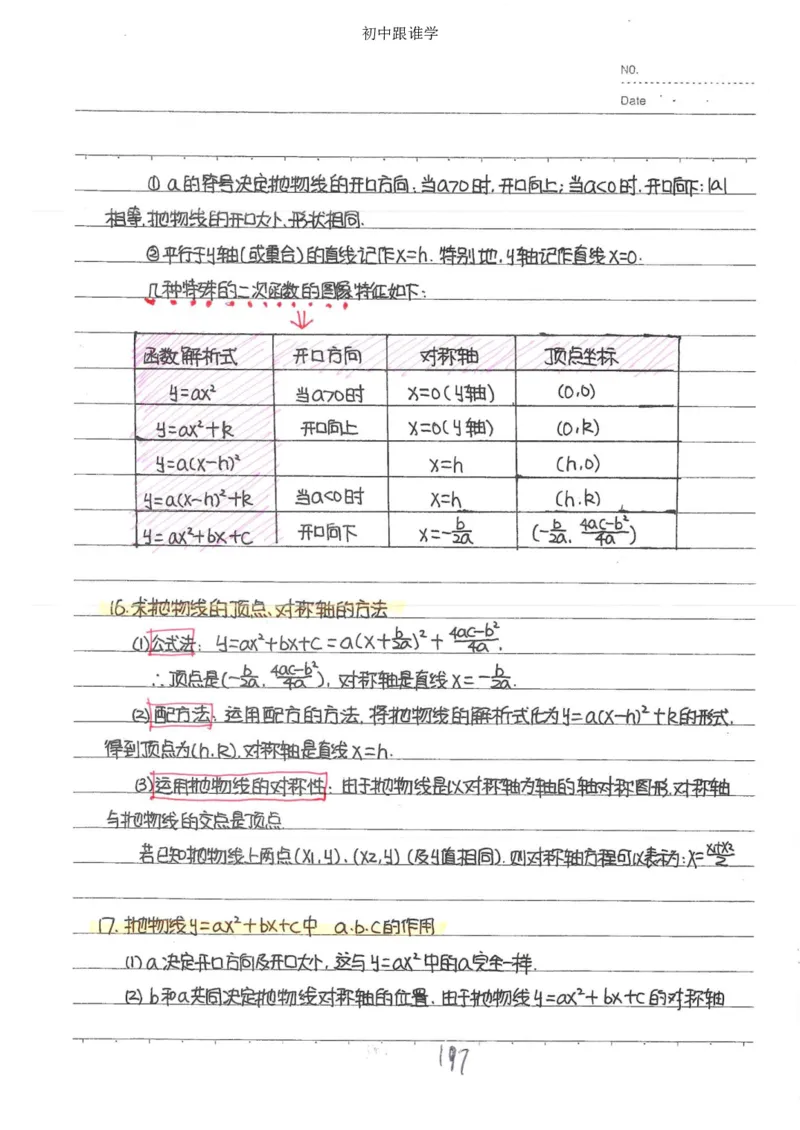 初中跟谁学
NO.
Date
① a的符号决定抛物线的开口方向:当a>0时,开口向上;当a<0时,开口向下;|a|
相等,抛物线的开口大小、形状相同.
②平行于y轴(或重合)的直线记作x=h. 特别地,y轴记作直线x=0.
几种特殊的二次函数的图像特征如下:
函数解析式 开口方向 对称轴 顶点坐标
y=ax² 当a>0时 x=0(y轴) (0,0)
y=ax²+k 开口向上 x=0(y轴) (0,k)
y=a(x-h)² x=h (h,0)
y=a(x-h)²+k 当a<0时 x=h (h.k)
y=ax²+bx+c 开口向下 x=-b/2a (-b/2a, 4ac-b²/4a)
16.求抛物线的顶点、对称轴的方法
(1)公式法: y=ax²+bx+c=a(x+b/2a)²+4ac-b²/4a,
∴顶点是(-b/2a, 4ac-b²/4a), 对称轴是直线x=-b/2a.
(2)配方法: 运用配方的方法, 将抛物线的解析式化为y=a(x-h)²+k的形式,
得到顶点为(h.k), 对称轴是直线x=h.
(3)运用抛物线的对称性: 由于抛物线是以对称轴为轴的轴对称图形,对称轴
与抛物线的交点是顶点
若已知抛物线上两点(x1,y)、(x2,y)(及y值相同),则对称轴方程可以表示为:x=x1+x2/2
17. 抛物线y=ax²+bx+c中 a.b.c的作用
(1) a决定开口方向及开口大小,这与y=ax²中的a完全一样.
(2) b和a共同决定抛物线对称轴的位置. 由于抛物线y=ax²+bx+c的对称轴
197